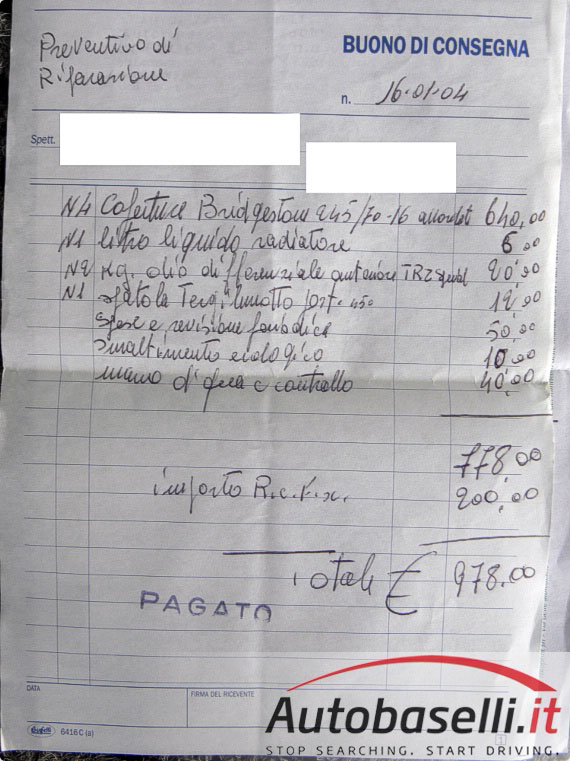 Preventivo di
Riparazione
BUONO DI CONSEGNA
n. 16-01-04
Spett.
N4 Coperture Bridgestone 245/70-16 640,00
N1 litro liquido radiatore 6,00
N2 Kg. olio differenziale anteriore TRZ special 20,00
N1 spatola Tergilunotto post. 450 12,00
spese e revisione periodica 50,00
smaltimento ecologico 10,00
mano d'opera e controllo 40,00
778,00
importo 200,00
Totale € 978.00
PAGATO
DATA
FIRMA DEL RICEVENTE
6416 C (a)
Autobaselli.it
STOP SEARCHING. START DRIVING.